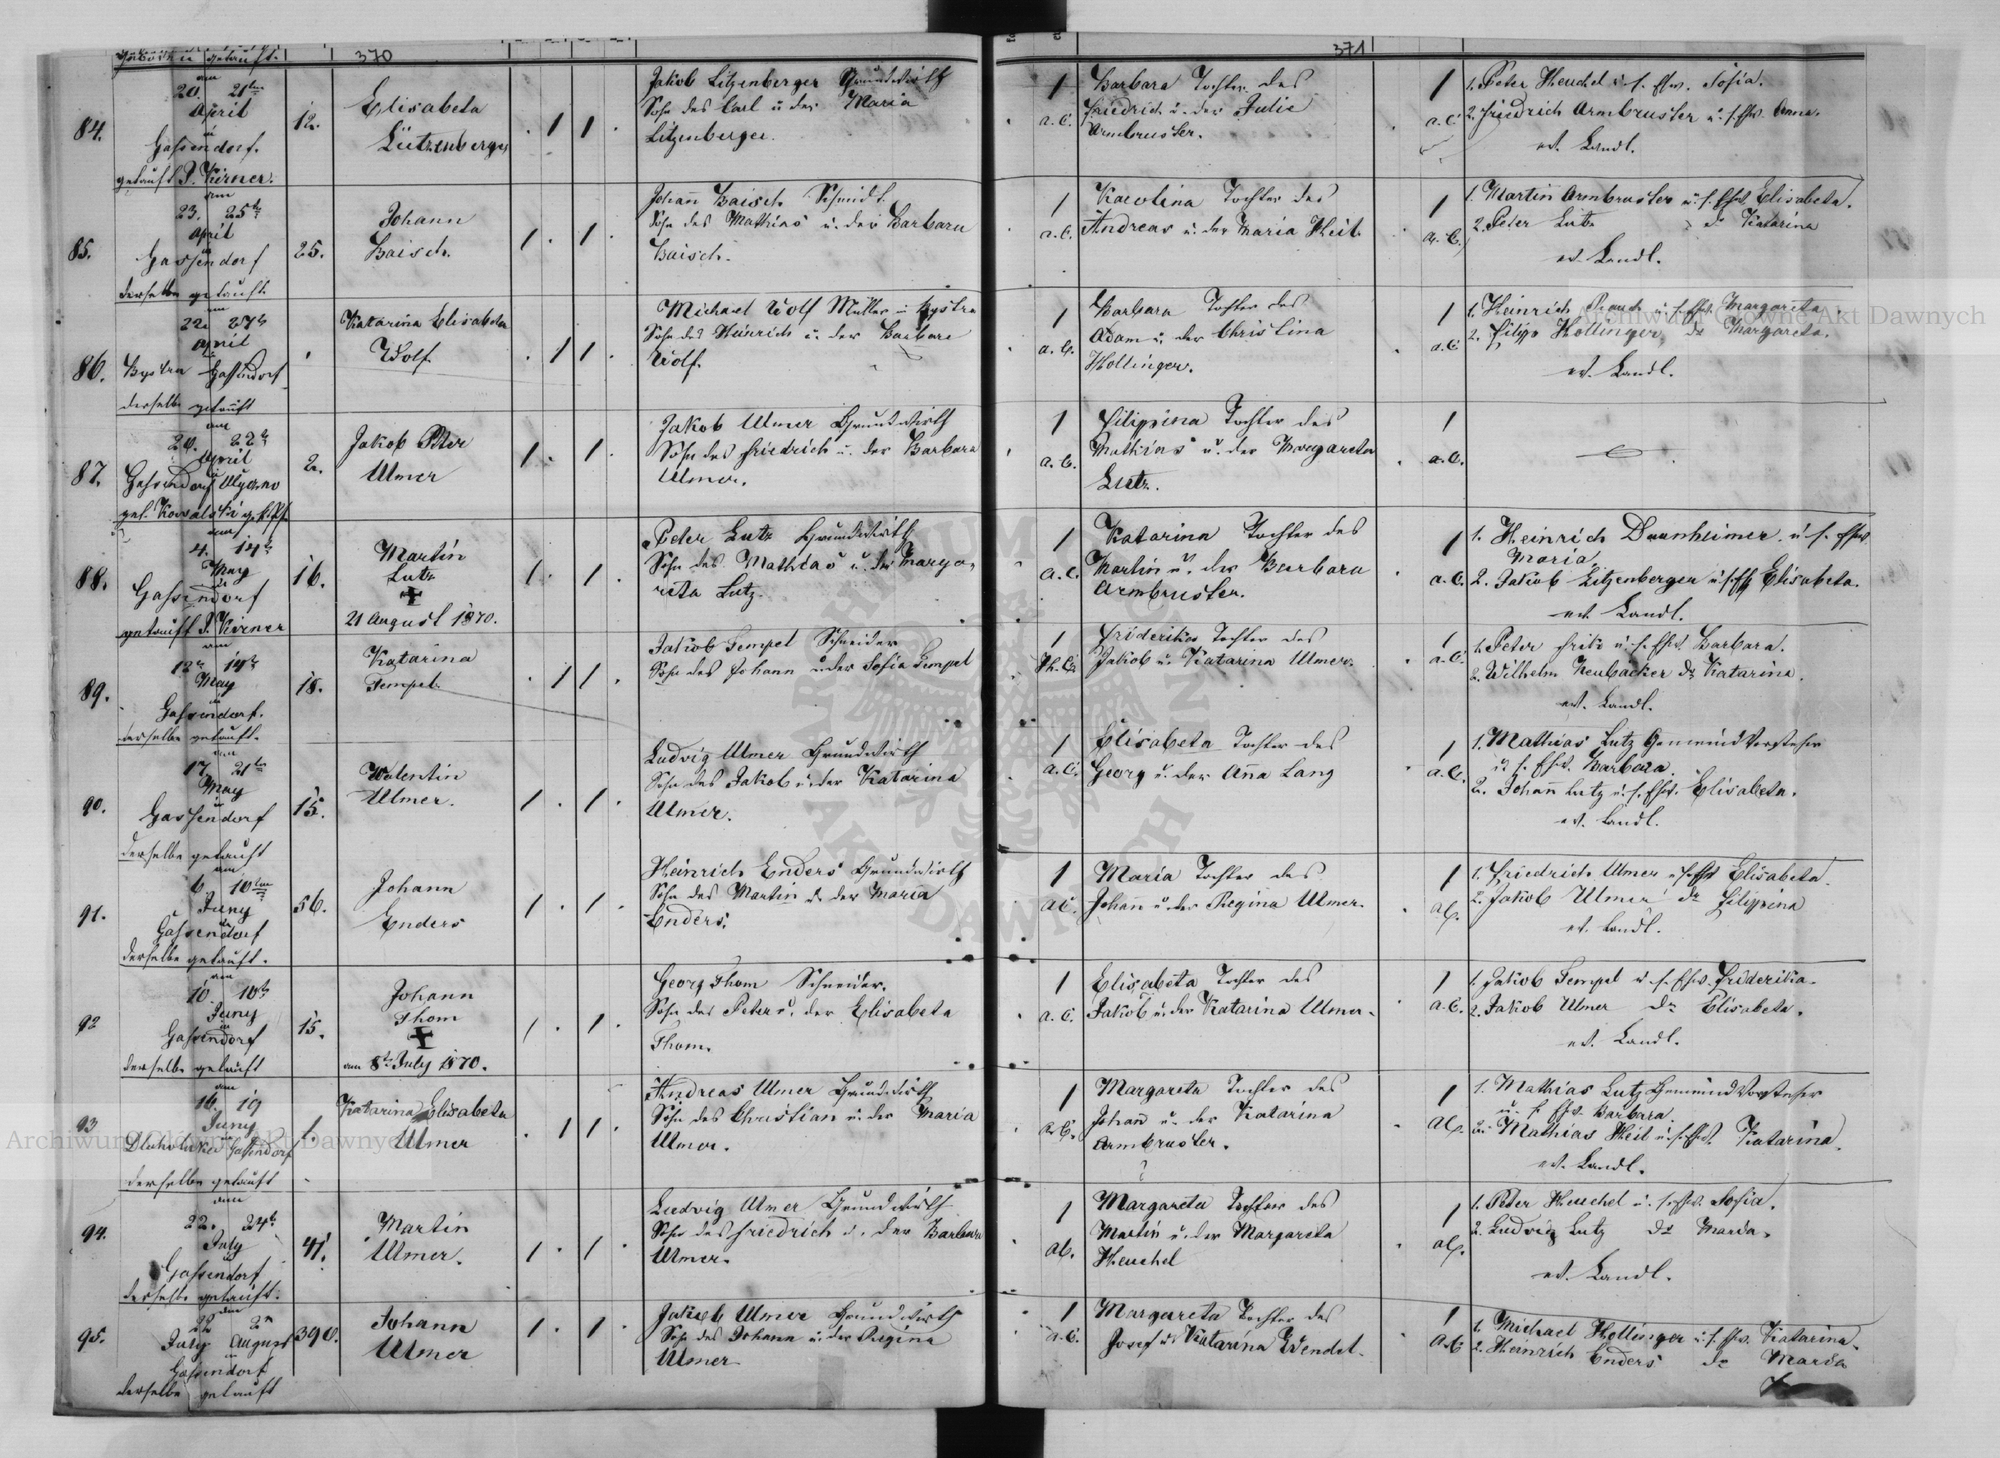 Geboren u getauft.
370
84.
am
20. 21ten
April
in
Gassendorf.
getauft P. Kirner.
12.
Elisabeta
Lützenberger
. 1 1 .
Jakob Litzenberger Grundwirth
Sohn des Carl u der Maria
Litzenberger.
85.
am
23. 25t
April
in
Gassendorf
derselbe getauft.
25.
Johann
Baisch.
1 . 1 .
Johann Baisch Schmidt.
Sohn des Mathias u. der Barbara
Baisch.
86.
am
22. 27t
April
Bystra Gassendorf
derselbe getauft
Katarina Elisabeta
Wolf.
. 1 1 .
Michael Wolf Müller in Bystra
Sohn des Heinrich u. der Barbara
Wolf.
87.
am
20. 22t
April
in
Gassendorf Ulyczno
get. Kowalski
2.
Jakob Peter
Ulmer
1 . 1 .
Jakob Ulmer Grundwirth
Sohn des Friedrich u. der Barbara
Ulmer.
88.
am
4. 14t
May
in
Gassendorf
getauft P. Kirner
16.
Martin
Lutz
21 August 1870.
1 . 1 .
Peter Lutz Grundwirth
Sohn des Mathias u. der Marga-
rita Lutz.
89.
am
12t 14t
May
in
Gassendorf.
derselbe getauft.
18.
Katarina
Tempel.
. 1 1 .
Jakob Tempel Schneider
Sohn des Johann u der Sofia Tempel
90.
am
17. 21te
May
in
Gassendorf
derselbe getauft
15.
Walentin
Ulmer.
1 . 1 .
Ludwig Ulmer Grundwirth
Sohn des Jakob u. der Katarina
Ulmer.
91.
am
6. 10ten
Juny
in
Gassendorf
derselbe getauft.
56.
Johann
Enders
1 . 1 .
Heinrich Enders Grundwirth
Sohn des Martin u. der Maria
Enders.
92
am
10. 10t
Juny
in
Gassendorf
derselbe getauft
15.
Johann
Thom
am 8te July 1870.
1 . 1 .
Georg Thom Schneider.
Sohn des Peter u. der Elisabeta
Thom.
93
am
16 19
Juny
Gassendorf
derselbe getauft
1.
Katarina Elisabeta
Ulmer
. 1 1 .
Andreas Ulmer Grundwirth
Sohn des Christian u. der Maria
Ulmer.
94.
am
22. 24t
July
in
Gassendorf
derselbe getauft.
41.
Martin
Ulmer.
1 . 1 .
Ludwig Ulmer Grundwirth
Sohn des Friedrich u. der Barbara
Ulmer.
95.
am
22 2n
July August
in
Gassendorf
derselbe getauft
390.
Johann
Ulmer
1 . 1 .
Jakob Ulmer Grundwirth
Sohn des Johann u. der Regina
Ulmer
371
1
a.C.
Barbara Tochter des
Friedrich u. der Julie
Armbruster.
1
a.C.
1. Peter Heuchel u. s. Ehw. Sofia.
2. Friedrich Armbruster u. s. Ehw. Anna.
ev. Landl.
1
a.C.
Karolina Tochter des
Andreas u. der Maria Heit.
1
a.C.
1. Martin Armbruster u. s. Ehw. Elisabeta.
2. Peter Lutz do Katarina
ev. Landl.
1
a.C.
Barbara Tochter des
Adam u. der Christina
Hollinger.
1
a.C.
1. Heinrich Rauch u. s. Ehw. Margareta
2. Filipp Hollinger do Margareta.
ev. Landl.
1
a.C.
Filippina Tochter des
Mathias u. der Margareta
Lutz.
1
a.C.
1
a.C.
Katarina Tochter des
Martin u. der Barbara
Armbruster.
1
a.C.
1. Heinrich Daunheimer u. s. Ehw.
Maria.
2. Jakob Litzenberger u. s. Ehw. Elisabeta.
ev. Landl.
1
H.C.
Friderika Tochter des
Jakob u. Katarina Ulmer.
1
a.C.
1. Peter Fritz u. s. Ehw. Barbara.
2. Wilhelm Neubacker do Katarina.
ev. Landl.
1
a.C.
Elisabeta Tochter des
Georg u. der Anna Lang
1
a.C.
1. Mathias Lutz Gemeind Vorsteher
u. s. Ehw. Barbara.
2. Johan Lutz u. s. Ehw. Elisabeta.
ev. Landl.
1
a.C.
Maria Tochter des
Johann u. der Regina Ulmer.
1
a.C.
1. Friedrich Ulmer u. s. Ehw. Elisabeta.
2. Jakob Ulmer do Filippina
ev. Landl.
1
a.C.
Elisabeta Tochter des
Jakob u. der Katarina Ulmer.
1
a.C.
1. Jakob Tempel u. s. Ehw. Friderika.
2. Jakob Ulmer do Elisabeta.
ev. Landl.
1
a.C.
Margareta Tochter des
Johan u. der Katarina
Armbruster.
1
a.C.
1. Mathias Lutz Gemeind Vorsteher
u. s. Ehw. Barbara.
2. Mathias Heit u. s. Ehw. Katarina.
ev. Landl.
1
a.C.
Margareta Tochter des
Martin u. der Margareta
Heuchel
1
a.C.
1. Peter Heuchel u. s. Ehw. Sofia.
2. Ludwig Lutz do Maria.
ev. Landl.
1
a.C.
Margareta Tochter des
Josef u. Katarina Wendel.
1
a.C.
1. Michael Hollinger u. s. Ehw. Katarina.
2. Heinrich Enders do Maria
Archiwum Główne Akt Dawnych
Archiwum Główne Akt Dawnych
ARCHIWUM GŁÓWNE AKT DAWNYCH